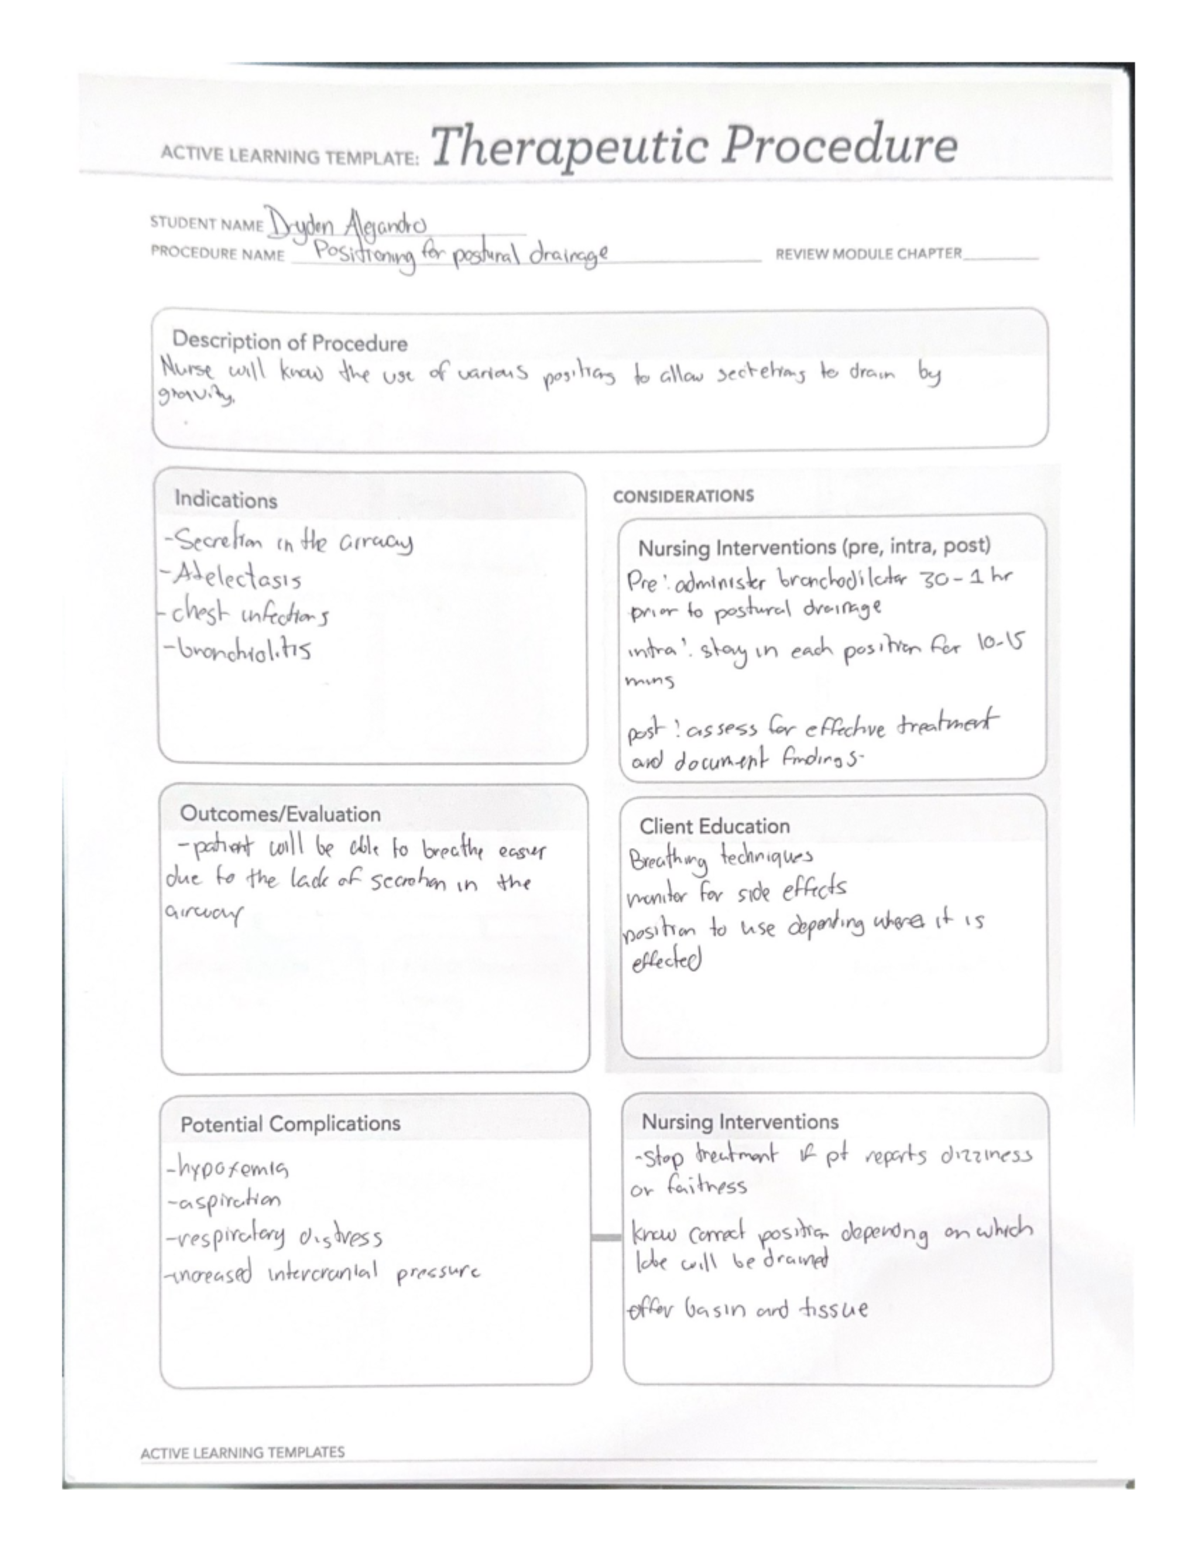 ACTIVE LEARNING TEMPLATE: Therapeutic Procedure
STUDENT NAME Dryden Alejandro
PROCEDURE NAME Positioning for postural drainage REVIEW MODULE CHAPTER
Description of Procedure
Nurse will know the use of various positions to allow secretions to drain by
gravity.
Indications
-Secretion in the airway
-Atelectasis
-chest infections
-bronchiolitis
CONSIDERATIONS
Nursing Interventions (pre, intra, post)
Pre: administer bronchodilator 30-1 hr
prior to postural drainage
intra: stay in each position for 10-15
mins
post: assess for effective treatment
and document findings.
Outcomes/Evaluation
-patient will be able to breathe easier
due to the lack of secretion in the
airway
Client Education
Breathing techniques
monitor for side effects
position to use depending where it is
effected
Potential Complications
-hypoxemia
-aspiration
-respiratory distress
-increased intercranial pressure
Nursing Interventions
-Stop treatment if pt reports dizziness
or faitness
know correct position depending on which
lobe will be drained
offer basin and tissue
ACTIVE LEARNING TEMPLATES